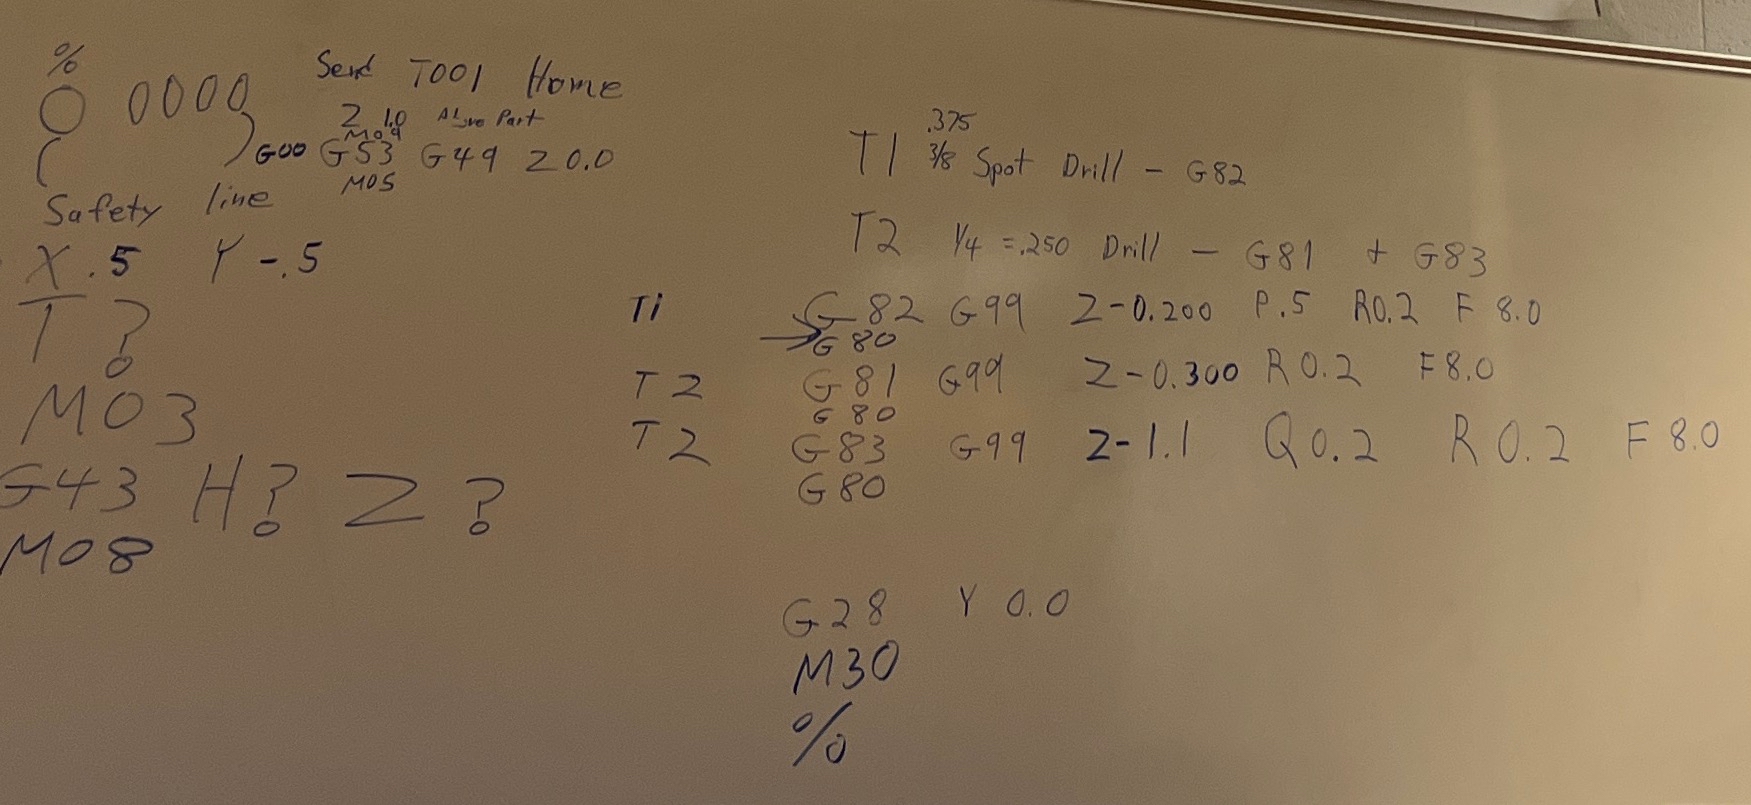 %
O 0000
(         )
Safety line
X.5 Y-.5
T?
M03
G43 H? Z?
M08
Send Tool Home
Z 1.0 Above Part
M09
G00 G53 G49 Z0.0
M05
.375
T1 3/8 Spot Drill - G82
T2 1/4 = .250 Drill - G81 + G83
T1 G82 G99 Z-0.200 P.5 R0.2 F 8.0
→ G80
T2 G81 G99 Z-0.300 R0.2 F8.0
G80
T2 G83 G99 Z-1.1 Q0.2 R0.2 F8.0
G80
G28 Y0.0
M30
%